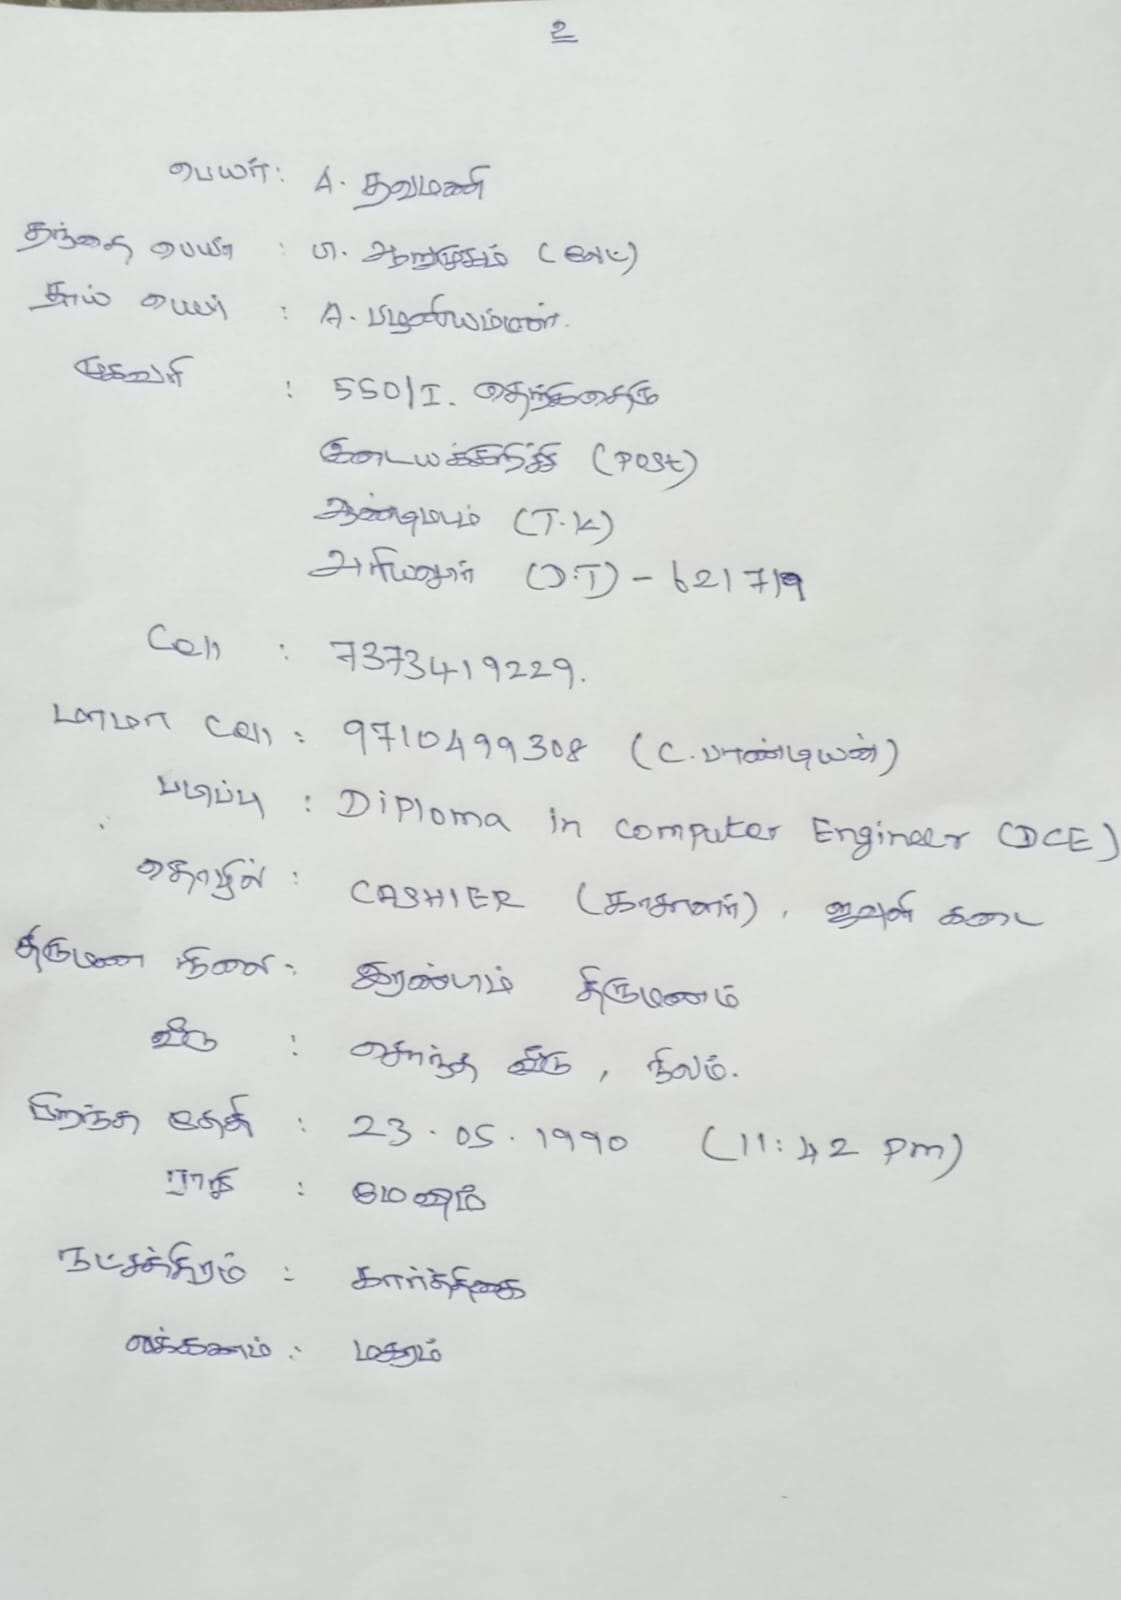 உ
பெயர்: A. தவமணி
தந்தை பெயர் : பா. ஆறுமுகம் (லேட்)
தாய் பெயர் : A. பழனியம்மாள்.
முகவரி : 550/I. தெற்குதெரு
இடையக்குறிச்சி (Post)
ஆண்டிமடம் (T.K)
அரியலூர் (D.T) - 621719
Cell : 7373419229.
மாமா Cell : 9710499308 (C. பாண்டியன்)
படிப்பு : Diploma in computer Engineer (DCE)
தொழில் : CASHIER (காசாளர்), ஜவுளி கடை
திருமண நிலை : இரண்டாம் திருமணம்
வீடு : சொந்த வீடு, நிலம்.
பிறந்த தேதி : 23.05.1990 (11:42 Pm)
ராசி : மேஷம்
நட்சத்திரம் : கார்த்திகை
லக்கணம் : மகரம்